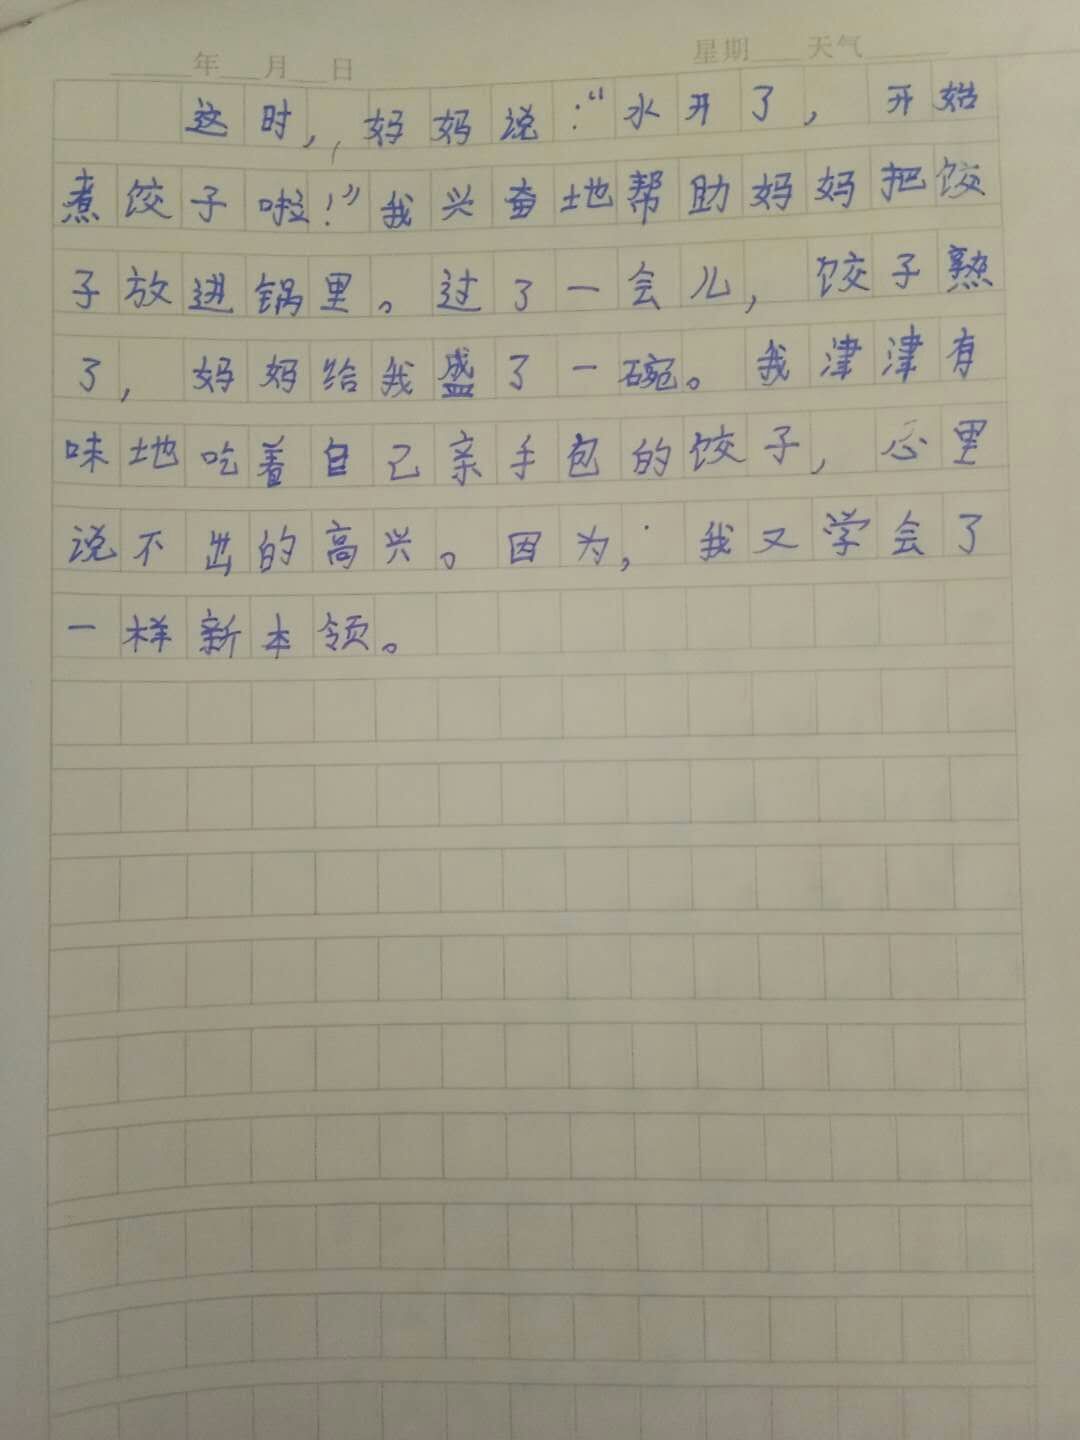 年 月 日 星期 天气
这时，妈妈说：“水开了，开始
煮饺子啦！”我兴奋地帮助妈妈把饺
子放进锅里。过了一会儿，饺子熟
了，妈妈给我盛了一碗。我津津有
味地吃着自己亲手包的饺子，心里
说不出的高兴。因为，我又学会了
一样新本领。